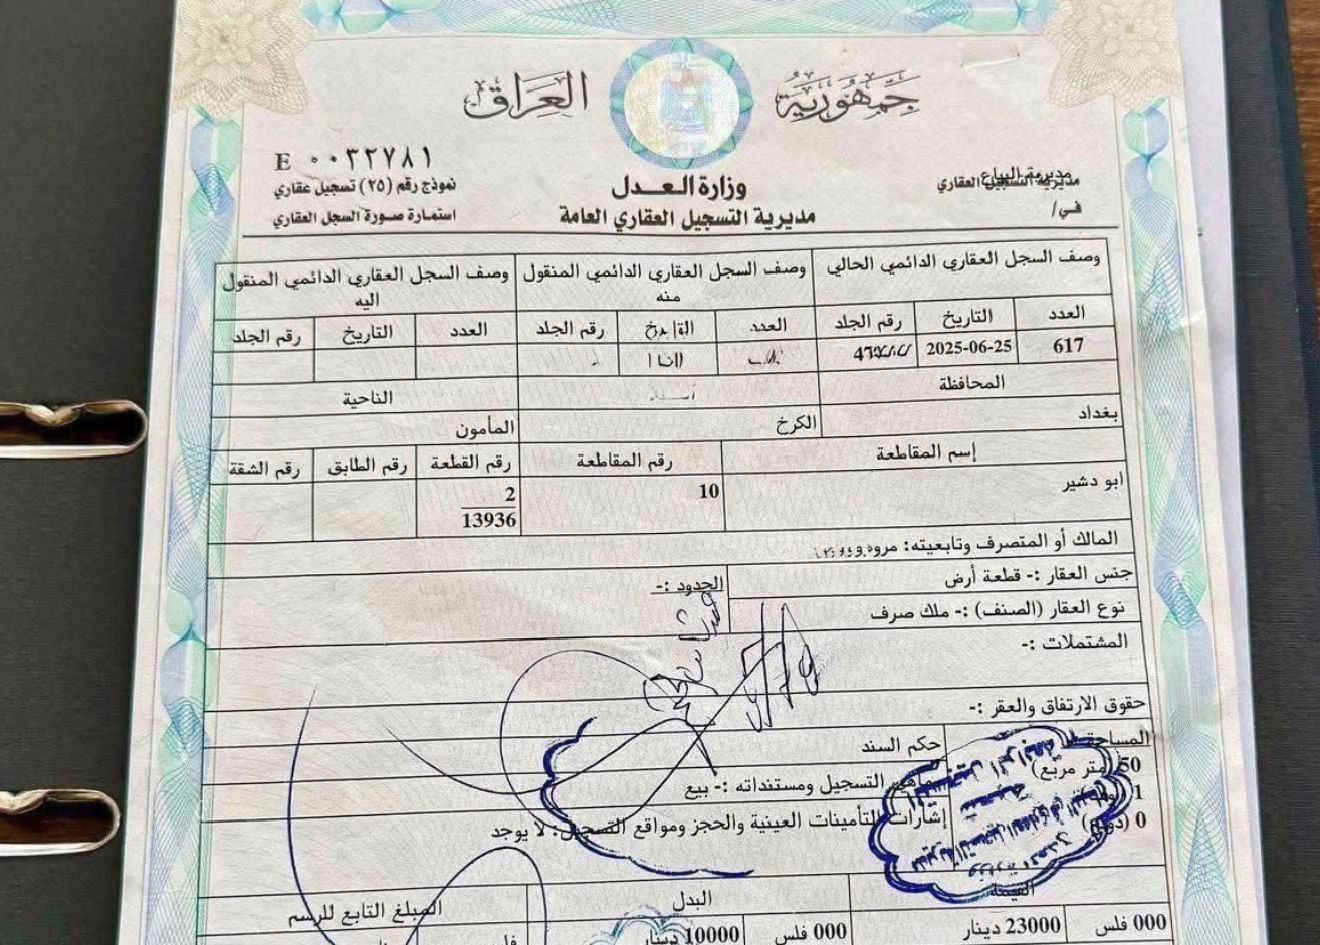 جمهورية العراق
E ٠٠٣٢٧٨١
نموذج رقم (٢٥) تسجيل عقاري
استمارة صورة السجل العقاري
وزارة العدل
مديرية التسجيل العقاري العامة
مديرية التسجيل العقاري
مديرية البياع
في/
وصف السجل العقاري الدائمي الحالي
وصف السجل العقاري الدائمي المنقول منه
وصف السجل العقاري الدائمي المنقول اليه
العدد التاريخ رقم الجلد العدد رقم الجلد العدد التاريخ رقم الجلد
617 2025-06-25
المحافظة الناحية
بغداد الكرخ المأمون
إسم المقاطعة رقم المقاطعة رقم القطعة رقم الطابق رقم الشقة
ابو دشير 10 2
13936
المالك أو المتصرف وتابعيته:
جنس العقار :- قطعة أرض الحدود :-
نوع العقار (الصنف) :- ملك صرف
المشتملات :-
حقوق الارتفاق والعقر :-
المساحة حكم السند
50 (متر مربع) ماهية التسجيل ومستنداته :- بيع
1
0 (دونم) إشارات التأمينات العينية والحجز ومواقع التسجيل: لا يوجد
القيمة البدل المبلغ التابع للرسم
000 فلس 23000 دينار 000 فلس 10000 دينار فلس